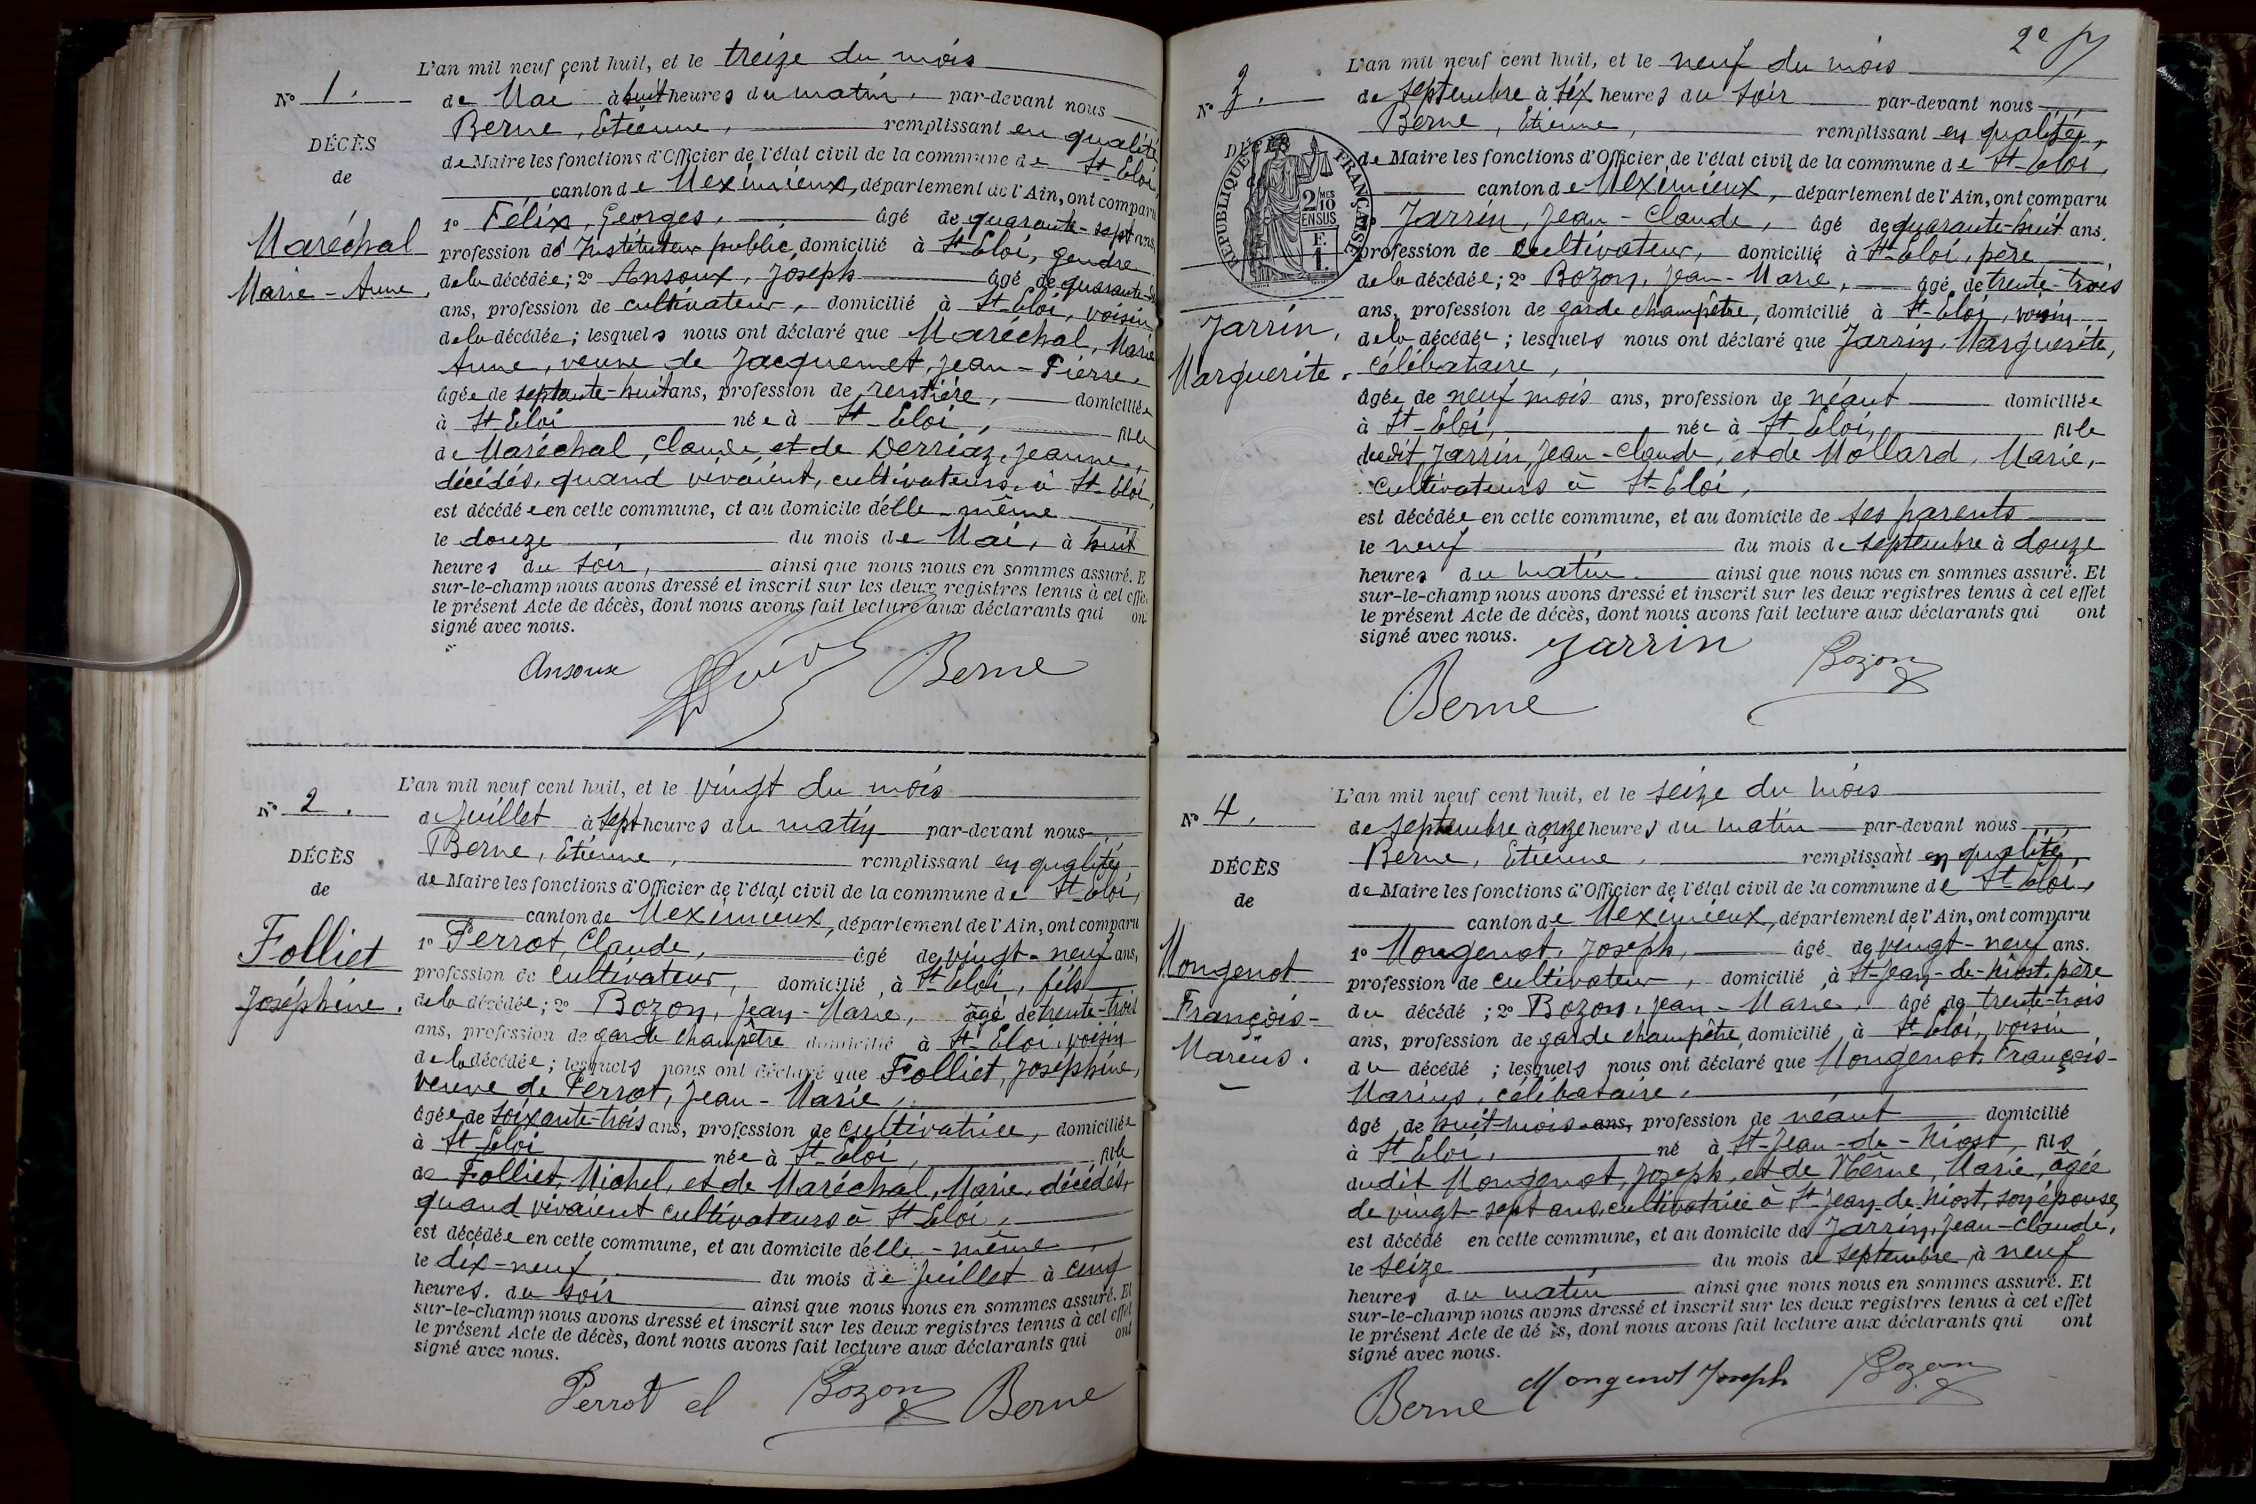 L'an mil neuf cent huit, et le treize du mois
N° 1.
de Mai à huit heures du matin, par-devant nous
Berne, Etienne, remplissant en qualité
DÉCÈS
de Maire les fonctions d'Officier de l'état civil de la commune de St-Eloi,
de
canton de Meximieux, département de l'Ain, ont comparu
1° Félix, Georges, âgé de quarante-sept ans,
Maréchal
profession de Instituteur public, domicilié à St-Eloi, gendre
Marie-Anne,
de la décédée; 2° Ansoux, Joseph âgé de quarante-
ans, profession de cultivateur, domicilié à St-Eloi, voisin
de la décédée; lesquels nous ont déclaré que Maréchal, Marie
Anne, veuve de Jacquemet, Jean-Pierre,
âgée de septante-huit ans, profession de rentière, domiciliée
à St Eloi née à St-Eloi, fille
de Maréchal, Claude, et de Derriaz, Jeanne,
décédés, quand vivaient, cultivateurs à St-Eloi,
est décédée en cette commune, et au domicile d'elle-même
le douze du mois de Mai, à huit
heures du soir, ainsi que nous nous en sommes assuré. E
sur-le-champ nous avons dressé et inscrit sur les deux registres tenus à cet effe
le présent Acte de décès, dont nous avons fait lecture aux déclarants qui on
signé avec nous.
Ansoux Berne
L'an mil neuf cent huit, et le vingt du mois
N° 2.
de Juillet à sept heures du matin par-devant nous
Berne, Etienne, remplissant en qualité
DÉCÈS
de Maire les fonctions d'Officier de l'état civil de la commune de St-Eloi,
de
canton de Meximieux, département de l'Ain, ont comparu
1° Perrot, Claude, âgé de vingt-neuf ans,
Folliet
profession de cultivateur, domicilié à St-Eloi, fils
Joséphine.
de la décédée; 2° Bozon, Jean-Marie, âgé de trente-trois
ans, profession de garde champêtre domicilié à St-Eloi, voisin
de la décédée; lesquels nous ont déclaré que Folliet, Joséphine,
veuve de Perrot, Jean-Marie,
âgée de soixante-trois ans, profession de cultivatrice, domiciliée
à St-Eloi née à St-Eloi, fille
de Folliet, Michel, et de Maréchal, Marie, décédés,
quand vivaient cultivateurs à St Eloi,
est décédée en cette commune, et au domicile d'elle-même,
le dix-neuf du mois de Juillet à cinq
heures du soir ainsi que nous nous en sommes assuré. Et
sur-le-champ nous avons dressé et inscrit sur les deux registres tenus à cet effet
le présent Acte de décès, dont nous avons fait lecture aux déclarants qui ont
signé avec nous.
Perrot cl Bozon Berne
2e
L'an mil neuf cent huit, et le neuf du mois
N° 3.
de septembre à six heures du soir par-devant nous
Berne, Etienne, remplissant en qualité,
DÉCÈS
RÉPUBLIQUE FRANÇAISE
2 MES
10
EN SUS
E.
1.
de Maire les fonctions d'Officier de l'état civil de la commune de St-Eloi,
canton de Meximieux, département de l'Ain, ont comparu
1° Jarrin, Jean-Claude, âgé de quarante-huit ans.
profession de cultivateur, domicilié à St-Eloi, père
de la décédée; 2° Bozon, Jean-Marie, âgé de trente-trois
ans, profession de garde champêtre, domicilié à St-Eloi, voisin
Jarrin,
de la décédée; lesquels nous ont déclaré que Jarrin, Marguerite,
Marguerite.
célibataire,
âgée de neuf mois ans, profession de néant domiciliée
à St-Eloi, née à St Eloi, fille
dudit Jarrin, Jean-Claude, et de Mollard, Marie,
cultivateurs à St-Eloi,
est décédée en cette commune, et au domicile de ses parents
le neuf du mois de septembre à douze
heures du matin ainsi que nous nous en sommes assuré. Et
sur-le-champ nous avons dressé et inscrit sur les deux registres tenus à cet effet
le présent Acte de décès, dont nous avons fait lecture aux déclarants qui ont
signé avec nous. Jarrin Bozon
Berne
L'an mil neuf cent huit, et le seize du mois
N° 4.
de septembre à onze heures du matin par-devant nous
Berne, Etienne, remplissant en qualité,
DÉCÈS
de Maire les fonctions d'Officier de l'état civil de la commune de St-Eloi,
de
canton de Meximieux, département de l'Ain, ont comparu
1° Mongenot, Joseph, âgé de vingt-neuf ans.
Mongenot
profession de cultivateur, domicilié à St-Jean-de-Niost, père
François-
du décédé; 2° Bozon, Jean-Marie, âgé de trente-trois
ans, profession de garde champêtre, domicilié à St Eloi, voisin
Marius.
du décédé; lesquels nous ont déclaré que Mongenot, François-
Marius, célibataire,
âgé de huit mois ans, profession de néant domicilié
à St Eloi, né à St-Jean-de-Niost, fils
dudit Mongenot, Joseph, et de Verne, Marie, âgée
de vingt-sept ans, cultivatrice à St-Jean-de-Niost, son épouse,
est décédé en cette commune, et au domicile de Jarrin, Jean-Claude,
le seize du mois de septembre à neuf
heures du matin ainsi que nous nous en sommes assuré. Et
sur-le-champ nous avons dressé et inscrit sur les deux registres tenus à cet effet
le présent Acte de dé s, dont nous avons fait lecture aux déclarants qui ont
signé avec nous.
Berne Mongenot Joseph Bozon